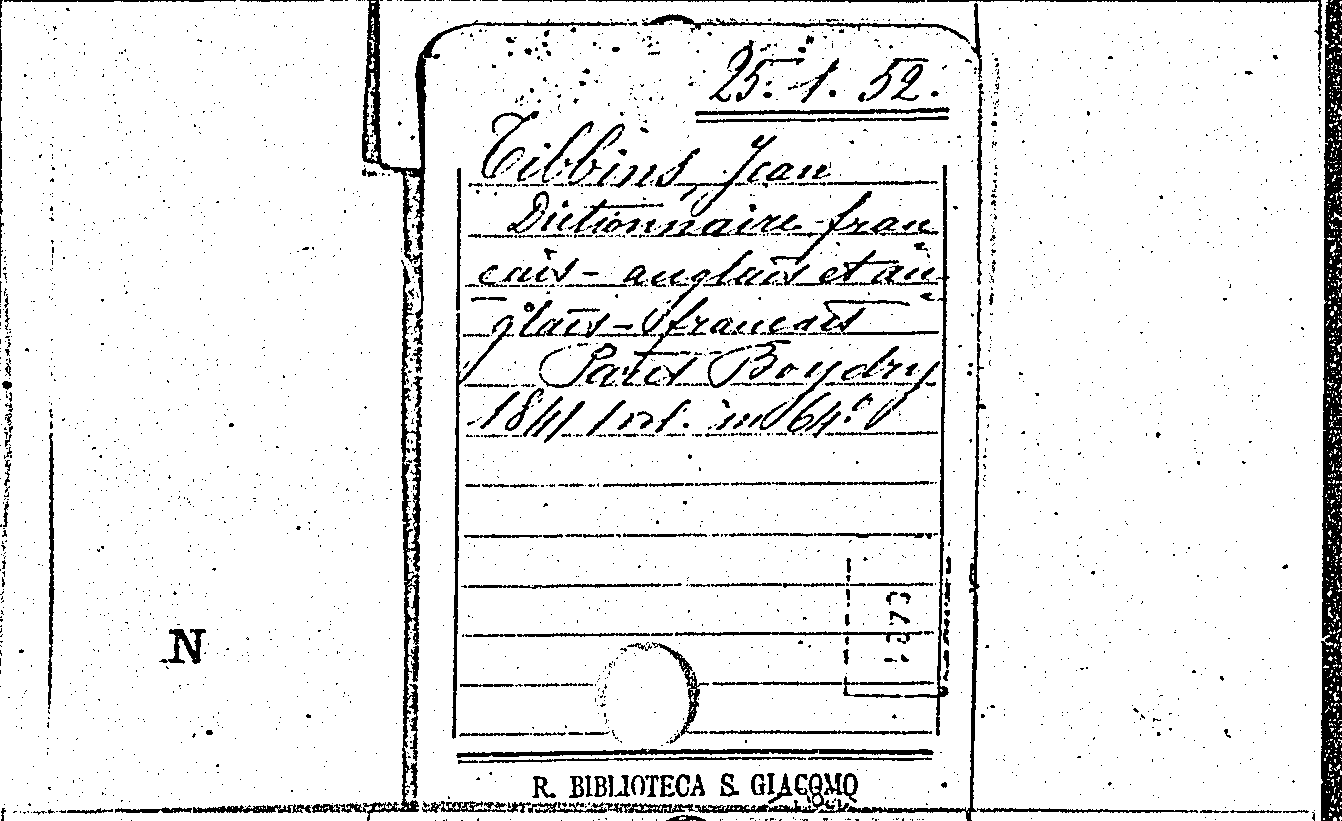 25. 1. 52.
Tibbins, Jean
Dictionnaire fran
cais - anglais et an
glais - francais
Paris Boydry
1841 1 vol. in 64.º
1873
N
R. BIBLIOTECA S. GIACOMO